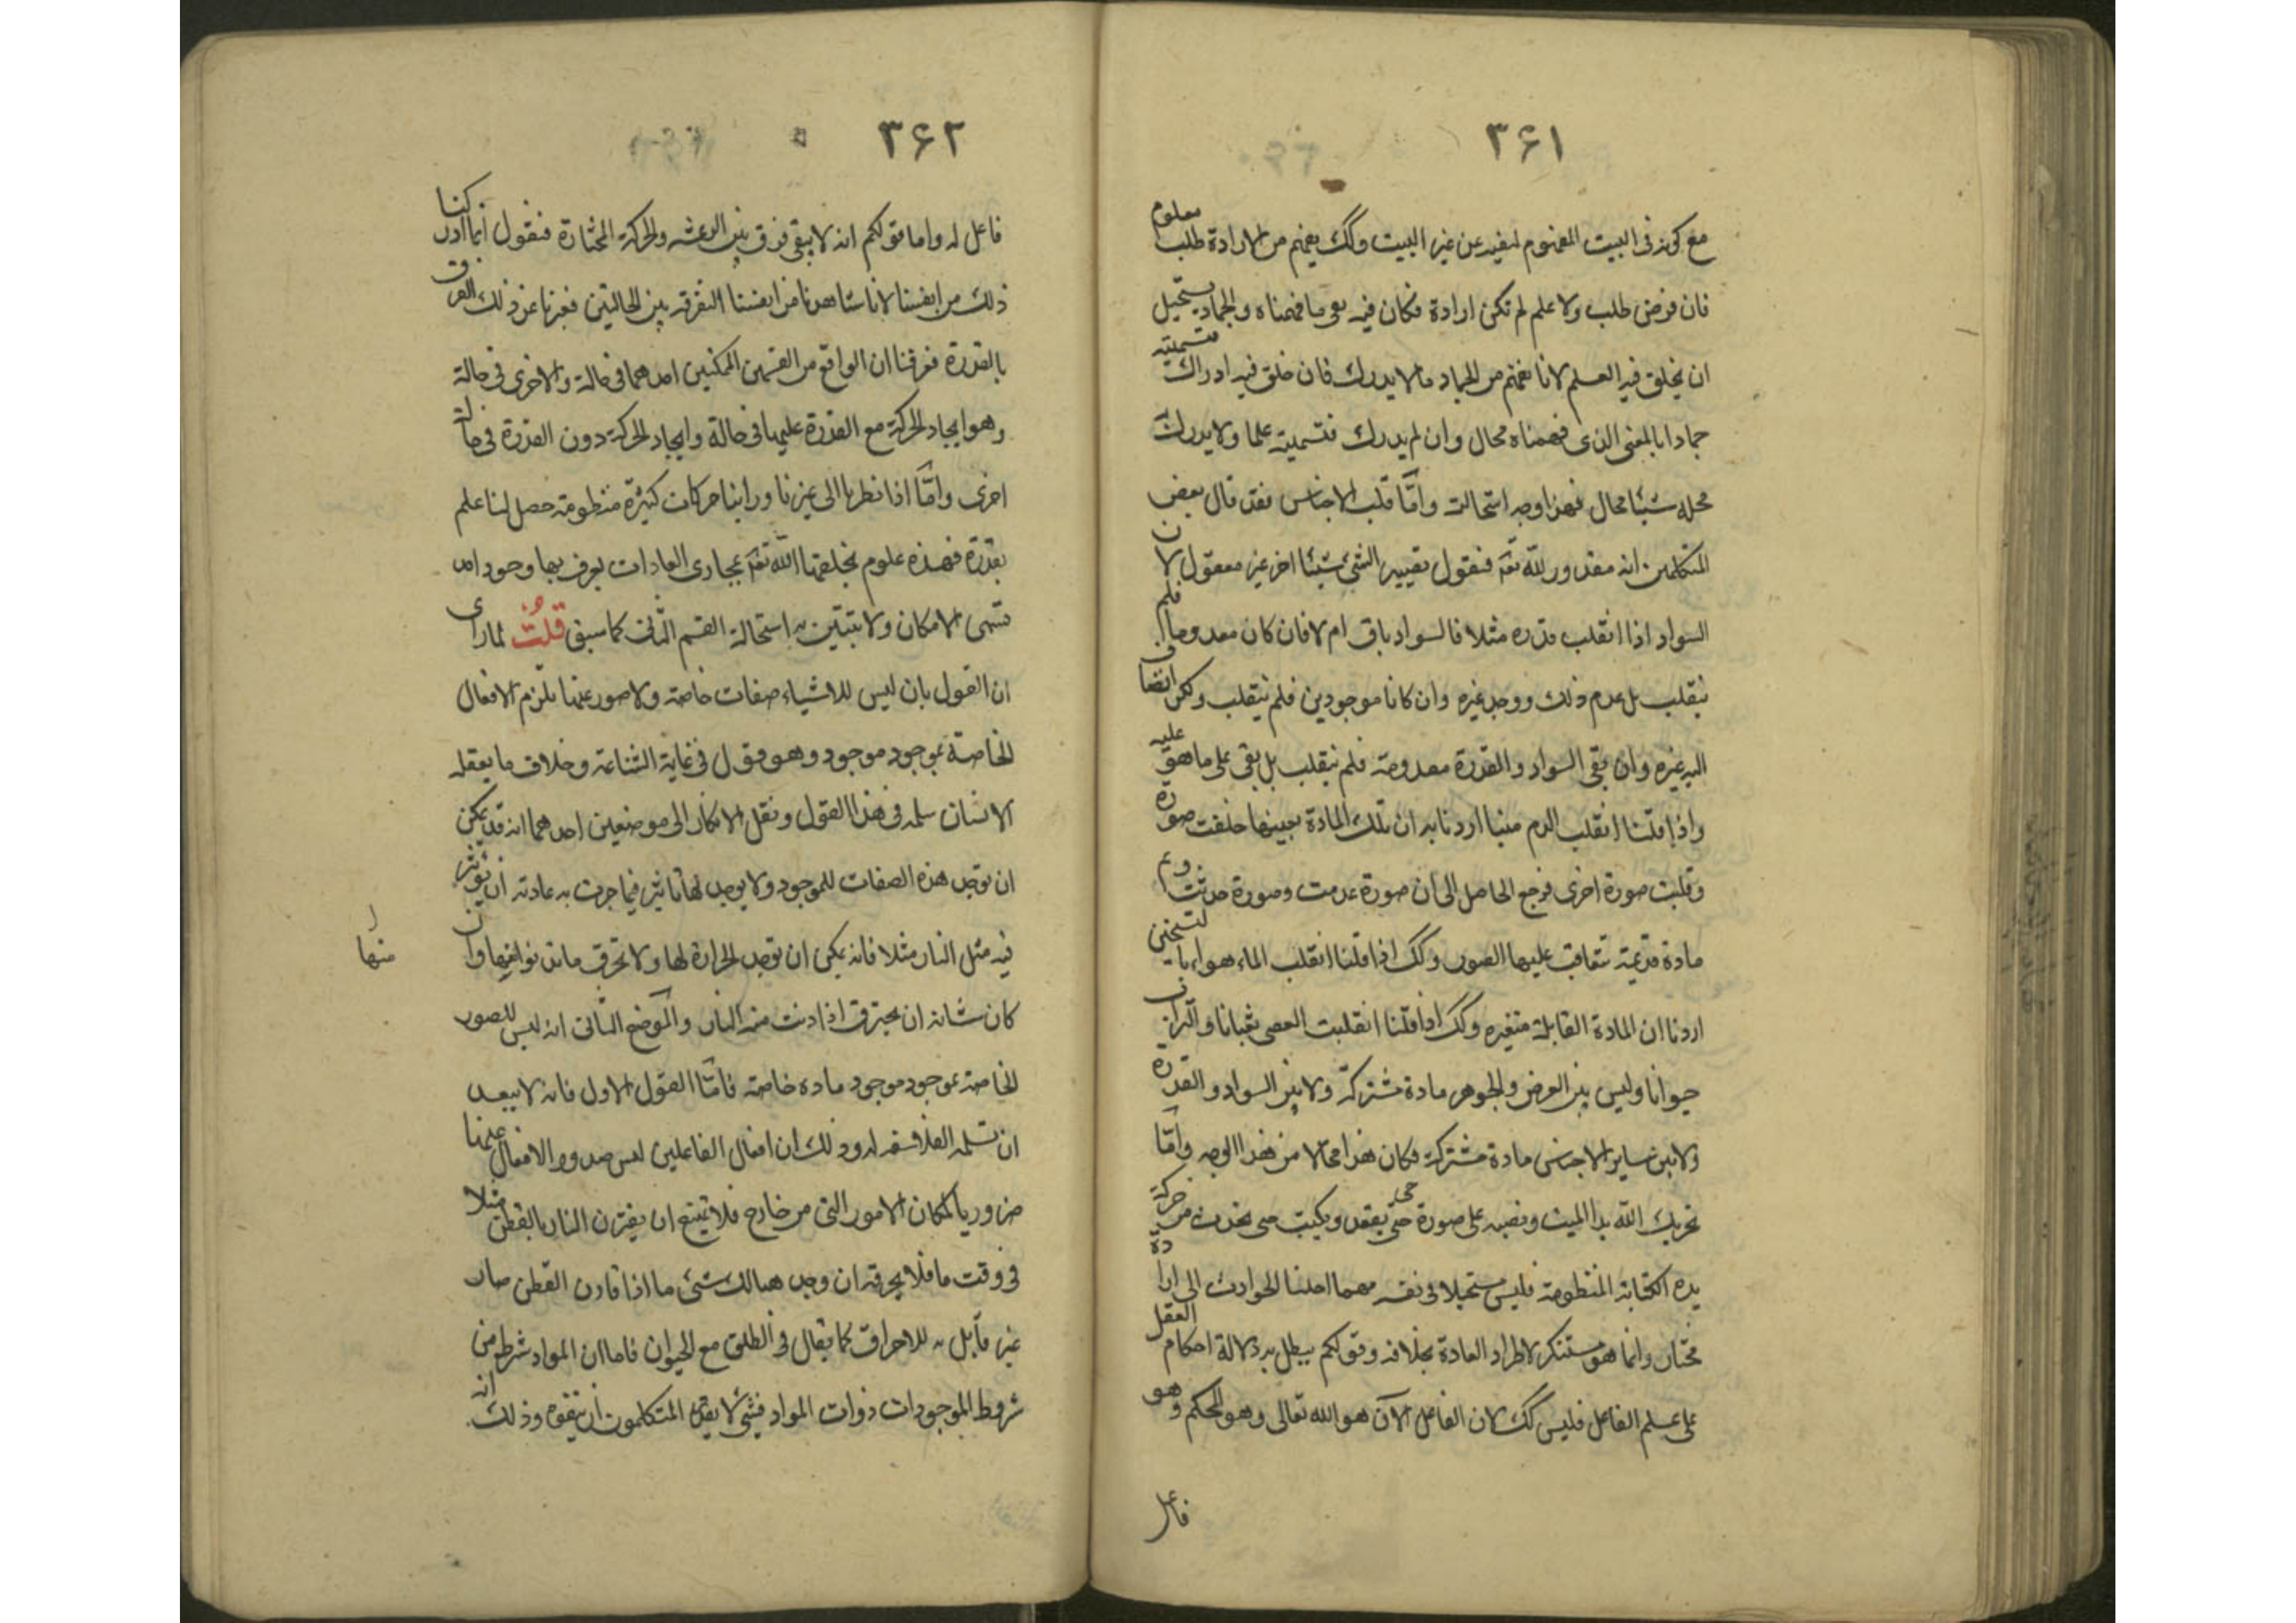 ٣۶١
مع كونه فى البيت المفهوم لنفيه عن غير البيت وكك يفهم من الارادة طلب معلوم
فان فرض طلب ولا علم لم تكن ارادة فكان فيه نفى ما فهمناه والجماد يستحيل
ان يخلق فيه العلم لانا نفهم من الجماد ما لا يدرك فان خلق فيه ادراك فتسميته
جمادا بالمعنى الذى فهمناه محال وان لم يدرك فتسميته علما ولا يدرك
محله شيئا محال فهذا وجه استحالته وامّا قلب الاجناس فقد قال بعض
المتكلمين انه مقدور لله تعه فنقول تصيير الشئ شيئا اخر غير معقول لان
السواد اذا انقلب قدره مثلا فالسواد باق ام لا فان كان معدوما فلم
ينقلب بل عدم ذلك ووجد غيره وان كانا موجودين فلم ينقلب ولكن انضاف
اليه غيره وان بقى السواد والقدرة معدومة فلم ينقلب بل بقى على ما هو عليه
واذا قلنا انقلب الدم منيا اردنا به ان تلك المادة بعينها خلعت صورة
وقلبت صورة اخرى فرجع الحاصل الى ان صورة عدمت وصورة حدثت وثم
مادة قديمة تتعاقب عليها الصور وكك اذا قلنا انقلب الماء هواء بالتسخين
اردنا ان المادة القابلة متغيره وكك اذا قلنا انقلبت العصى ثعبانا والتراب
حيوانا وليس بين العرض والجوهر مادة مشتركة ولا بين السواد والقدرة
ولا بين ساير الاجناس مادة مشتركة فكان هذا محالا من هذا الوجه وامّا
تحريك الله يد الميت ونصبه على صورة حى حتى يقعد ويكتب حتى يحدث من حركة
يده الكتابة المنظومة فليس مستحيلا فى نفسه مهما احلنا الحوادث الى ارادة
مختار وانما هو مستنكر لاطراد العادة بخلافه وقولكم يبطل به دلالة احكام العقل
على علم الفاعل فليس كك لان الفاعل الآن هو الله تعالى وهو المحكم وهو
فاعل
٣۶٢
فاعل له واما قولكم انه لا يبقى فرق بين الرعشه والحركة المختارة فنقول انما ادركنا
ذلك من انفسنا لانا شاهدنا من انفسنا التفرقه بين الحالتين فعبرنا عن ذلك الفرق
بالقدرة فعرفنا ان الواقع من القسمين الممكنين احدهما فى حالة والاخرى فى حالة
وهو ايجاد الحركة مع القدرة عليها فى حالة وايجاد الحركة دون القدرة فى حالة
اخرى وامّا اذا نظرنا الى غيرنا وراينا حركات كثيرة منظومة حصل لنا علم
بقدرة فهذه علوم يخلقها الله تعه بمجارى العادات يعرف بها وجود احد
قسمى الامكان ولا يتبيّن به استحالة القسم الثانى كما سبق قلتُ لما راى
ان القول بان ليس للاشياء صفات خاصة ولا صور عنها تلزم الافعال
الخاصة بموجود موجود وهو قول فى غاية الشناعة وخلاف ما يعقله
الانسان سلمه فى هذا القول ونقل الانكار الى موضعين احدهما انه قد يمكن
ان توجد هذه الصفات للموجود ولا يوجد لها تاثير فيما جرت به عادته ان يؤثر
فيه مثل النار مثلا فانه يمكن ان توجد الحرارة لها ولا تحرق ما تدنو اليها وان منها
كان شانه ان يحترق اذا دنت منه النار والموضع الثانى انه ليس للصور
الخاصة بموجود موجود مادة خاصة فامّا القول الاول فانه لا يبعد
ان تسلمه الفلاسفه له وذلك ان افعال الفاعلين ليس صدور الافعال عنها
ضروريا لمكان الامور التى من خارج فلا يمتنع ان يقترن النار بالقطن مثلا
فى وقت ما فلا يحرقه ان وجد هنالك شئ ما اذا قارن القطن صار
غير قابل به للاحراق كما يقال فى الطلق مع الحيوان فاما ان المواد شرط من
شروط الموجودات ذوات المواد فشئ لا يقدر المتكلمون ان يقوم وذلك انه